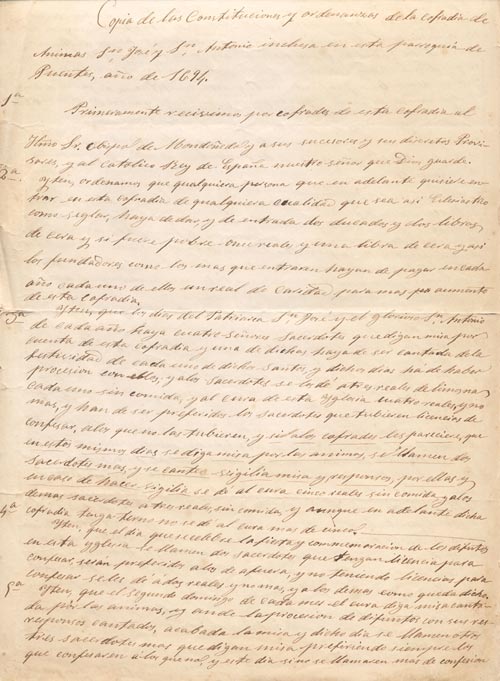 Copia de las Constituciones y ordenanzas de la cofradia de
Animas Sn. José y Sn. Antonio inclusa en esta parroquia de
Puentes, año de 1694.
1ª
Primeramente recivimos por cofrades de esta cofradia al
Yllmo Sr. Obispo de Mondoñedo y a sus sucesores y sus discretos Provi-
sores, y al Catolico Rey de España nuestro señor que Dios guarde.
2ª
Yten, ordenamos que qualquiera persona que en adelante quisiere en-
trar en esta cofradia de qualquiera cualidad que sea asi Eclesiastico
como seglar, haya de dar, y de entrada dos ducados y dos libras
de cera y si fuere pobre once reales y una libra de cera y asi
los fundadores como los mas que entraren hayan de pagar en cada
año cada uno de ellos un real de Caridad para mas aumento
de esta Cofradia.
3ª
Yten, que los dias del Patriarca Sn. José y el glorioso Sn. Antonio
de cada año haya cuatro señores Sacerdotes que digan misa por
cuenta de esta cofradia y una de dichas haya de ser cantada de la
festividad de cada uno de dichos Santos, y dichos dias ha de haber
procesion con ellos, y a los sacerdotes se les dé a tres reales de limosna
cada uno sin comida, y al cura de esta Yglesia cuatro reales, y no
mas, y han de ser preferidos los sacerdotes que tubieren licencias de
confesar, a los que no las tubieren, y si a los cofrades les pareciere, que
en estos mismos dias se diga misa por las animas, se llamen dos
Sacerdotes mas, y se cante vigilia misa y responsos, por ellas y
en caso de hacer vigilia se dé al cura cinco reales sin comida, y a los
demas sacerdotes a tres reales, sin comida, y aunque en adelante dicha
cofradia tenga terno no se dé al cura mas de cinco.
4ª
Yten, que el dia que se celebre la fiesta y conmemoracion de los difuntos
en esta yglesia se llamen dos sacerdotes que tengan licencia para
confesar seran preferidos a los de afuera, y no teniendo licencias para
confesar se les dé a dos reales y no mas, y a los demas como queda dicho.
5ª
Yten, que el segundo domingo de cada mes el cura diga misa canta-
da por las animas, y ande la procesion de difuntos con sus res-
ponsos cantados, acabada la misa y dicho dia se llamen otros
tres sacerdotes mas que digan misa prefiriendo siempre los
que confesaren a los que no, y este dia si no se llamaren mas de confesion